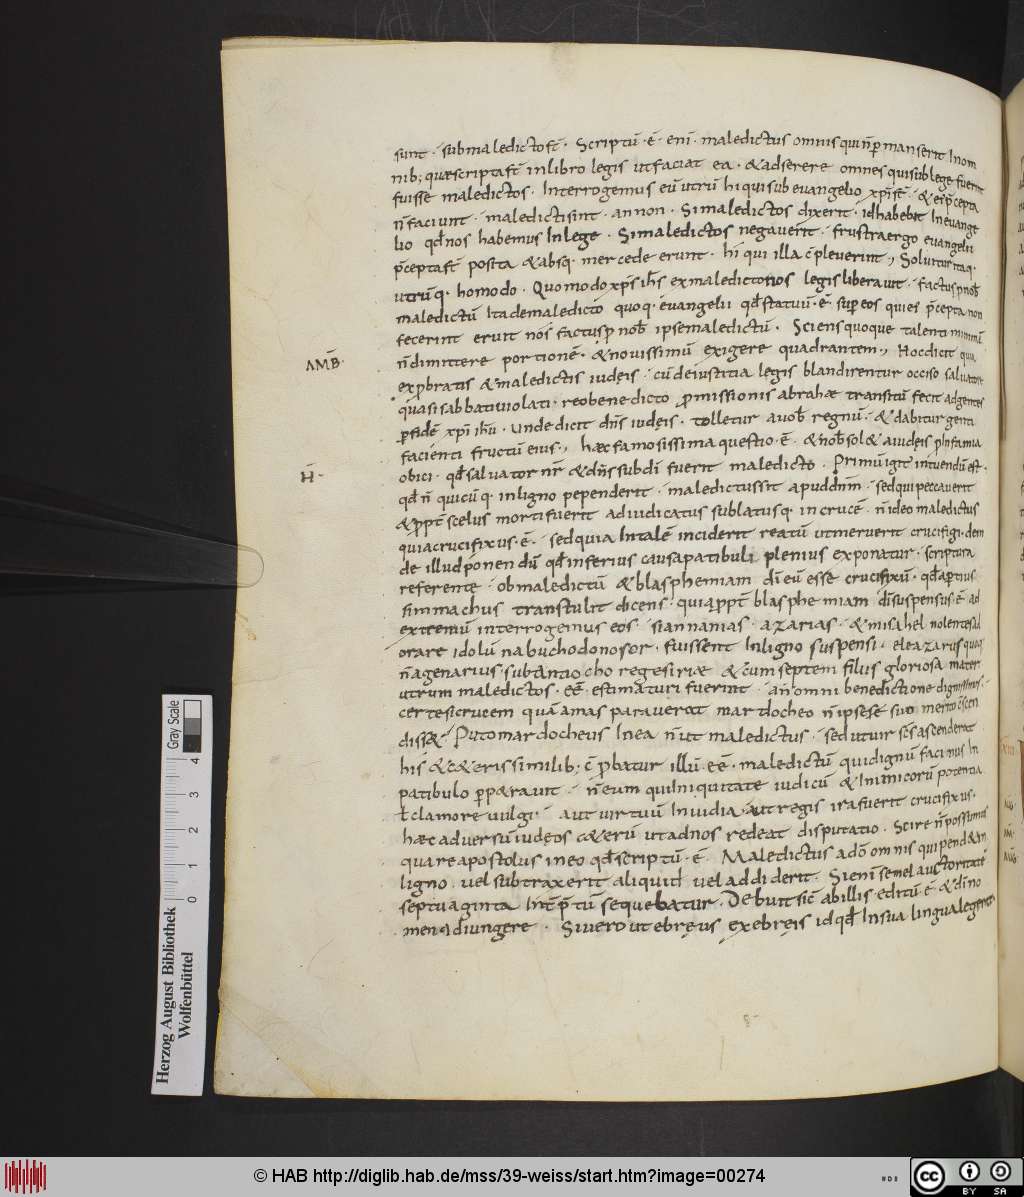 sunt · submaledicto st̄ · Scriptū · ē · eni · maledictus omnis qui n̄ p̱manserit In om
nib; quae scripta st̄ in libro legis ut faciat ea · & adserere omnes qui sub lege fuerit
fuisse maledictos · Interrogemus eū utrū hi qui sub evangelio xp̄i st̄ · & ei p̄cepta
n̄ faciunt · maledicti sint · an non · Si maledictos dixerit · id habebit In evange
lio qđ nos habemus In lege · Si maledictos negaverit · frustra ergo evangelii
p̄cepta st̄ posita & absq· mercede erunt · hi qui illa c̄pleverint , Solvitur itaq·
utrūq· hoc modo · Quomodo xp̄s ih̄s ex maledictionis legis liberavit · factus p nob̄
maledictū Ita de maledicto quoq· evangelii qđ statutū · ē · sup eos qui ei p̄cepta non
fecerint eruit nos factus p nob̄ ipse maledictū · Sciens quoque talenti minimū
n̄ dimittere portionē · & novissimū exigere quadrantem , Hoc dicit quia
exprobratis & maledictis iudęis · cū de iustitia legis blandirentur occiso salvatore
quasi sabbati violati · reo benedicto promissionis abrahae transitū fecit ad gentes
p̱ fidē xp̄i ih̄u · Unde dicit dn̄s iudęis · tolletur a vob̄ regnū · & dabitur genti
facienti fructū eius , haec famosissima questio · ē · & nob̄ sol& a iudęis p̱ Infamia
obici · qđ salvator nr̄ & dn̄s sub dī fuerit maledicto · Primū igit̄ intuendū est ·
qđ n̄ quicūq· in ligno pependerit · maledictus sit apud dn̄m · sed qui peccaverit
& ppt̄ scelus mortifuerit adiudicatus sublatusq· in crucē · n̄ ideo maledictus
quia crucifixus · ē · sed quia In talē inciderit reatū ut meruerit crucifigi · dein
de illud ponendū qđ inferius causa patibuli plenius exponatur · scriptura
referente · ob maledictū & blasphemiam dī eū esse crucifixū · qđ ap̱tius
simmachus transtulit dicens · quia ppt̄ blasphemiam dī suspensus · ē · ad
extremū interrogemus eos · si annanias · azarias · & misahel nolentes ad
orare idolū nabuchodonosor · fuissent In ligno suspensi · eleazarus quoq·
n̄agenarius · sub antiocho rege siriae & cum septem filiis gloriosa mater
utrum maledictos · eē · estimaturi fuerint · an̄ omni benedictione dignissimos ·
certe si crucem quā amas paraverat mardocheo n̄ ipse sē suo merito c̄scen
diss& · Puto mardocheus In ea n̄ ut maledictus · sed ut vir sc̄s ascenderat
his & c&eris similib; c̄pbatur illū · eē · maledictū qui dignū facinus In
patibulo p̱p&ravit · n̄ eum qui Iniquitate iudicū & Inimicorū potentia
ł clamore vulgi · aut virtuū Invidia · aut regis ira fuerit crucifixus ·
haec adversū iudęos c&erū ut ad nos redeat disputatio · Scire n̄ possumus
quare apostolus in eo qđ scriptū · ē · Maledictus a dō omnis qui pend& In
ligno · vel subtraxerit aliquid vel addiderit · Si eni semel auctoritatē
septuaginta Int̄p̄tū sequebatur · Debuit sic ab illis editū · ē · & dī no
men adiungere · Si vero ut ebręus ex ebręis id qđ In sua lingua legerat
AMB̄ ·
H̄ ·
Herzog August Bibliothek
Wolfenbüttel
0 1 2 3 4
Gray Scale
© HAB http://diglib.hab.de/mss/39-weiss/start.htm?image=00274
cc
BY SA